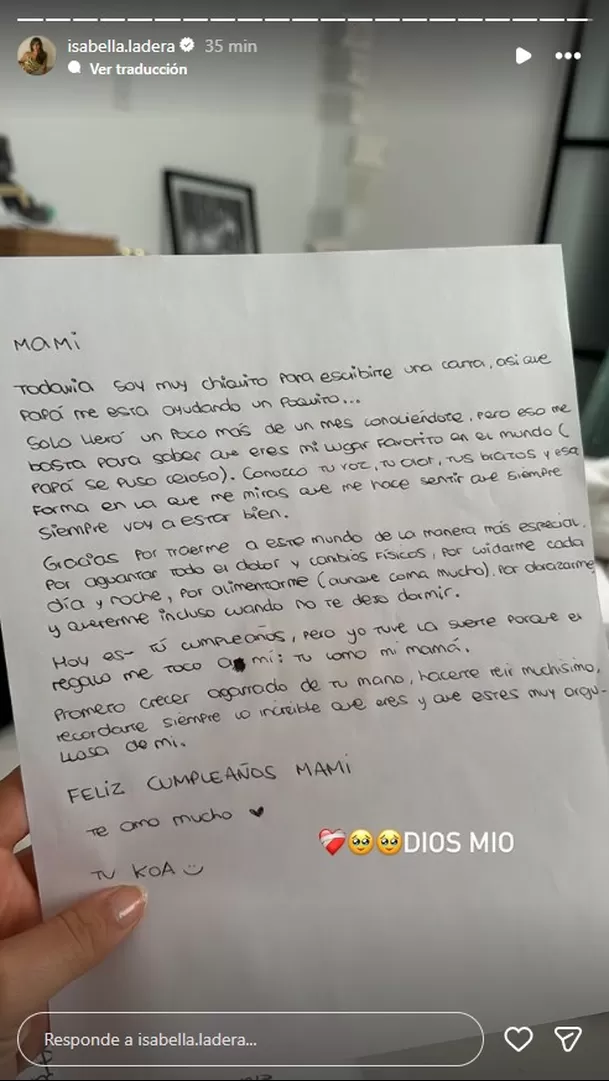 isabella.ladera 35 min
Ver traducción
MAMi
Todavia soy muy chiquito para escibirte una carta, asi que
papá me esta ayudando un poquito...
Solo llevó un poco más de un mes conociéndote, pero eso me
basta para saber que eres mi lugar favorito en el mundo (
papá se puso celoso). Conozco tu voz, tu olor, tus brazos y esa
forma en la que me miras que me hace sentir que siempre
siempre voy a estar bien.
Gracias por traerme a este mundo de la manera más especial.
Por aguantar todo el dolor y cambios físicos, por cuidarme cada
día y noche, por alimentarme (aunque coma mucho). Por abrazarme
y quererme incluso cuando no te dejo dormir.
Hoy es tú cumpleaños, pero yo tuve la suerte porque el
regalo me toco a mí: tu como mi mamá.
Prometo crecer agarrado de tu mano, hacerte reir muchísimo,
recordarte siempre lo increíble que eres y que estes muy orgu-
llosa de mi.
FELiZ CUMPLEAÑOS MAMi
Te amo mucho ♥
TU KOA :)
❤️‍🩹🥹🥹DIOS MIO
Responde a isabella.ladera...